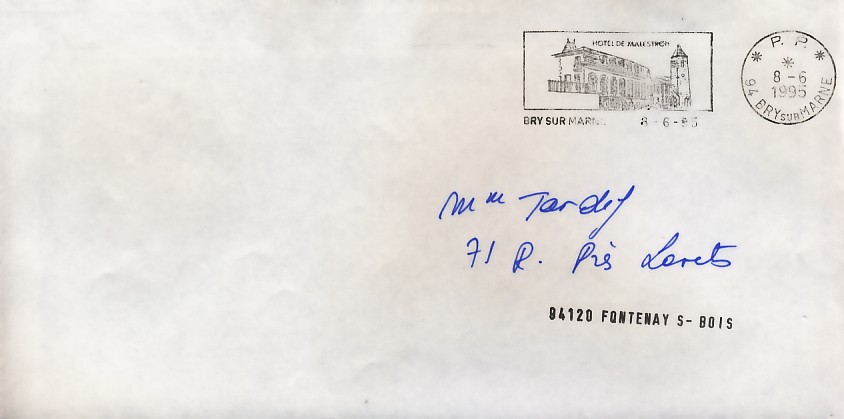 HOTEL DE MALESTROIT
P. P.
8 - 6
1995
94 BRY SUR MARNE
BRY SUR MARNE 8 - 6 - 95
Mme Tardif
71 R. Prés Lorets
94120 FONTENAY S- BOIS